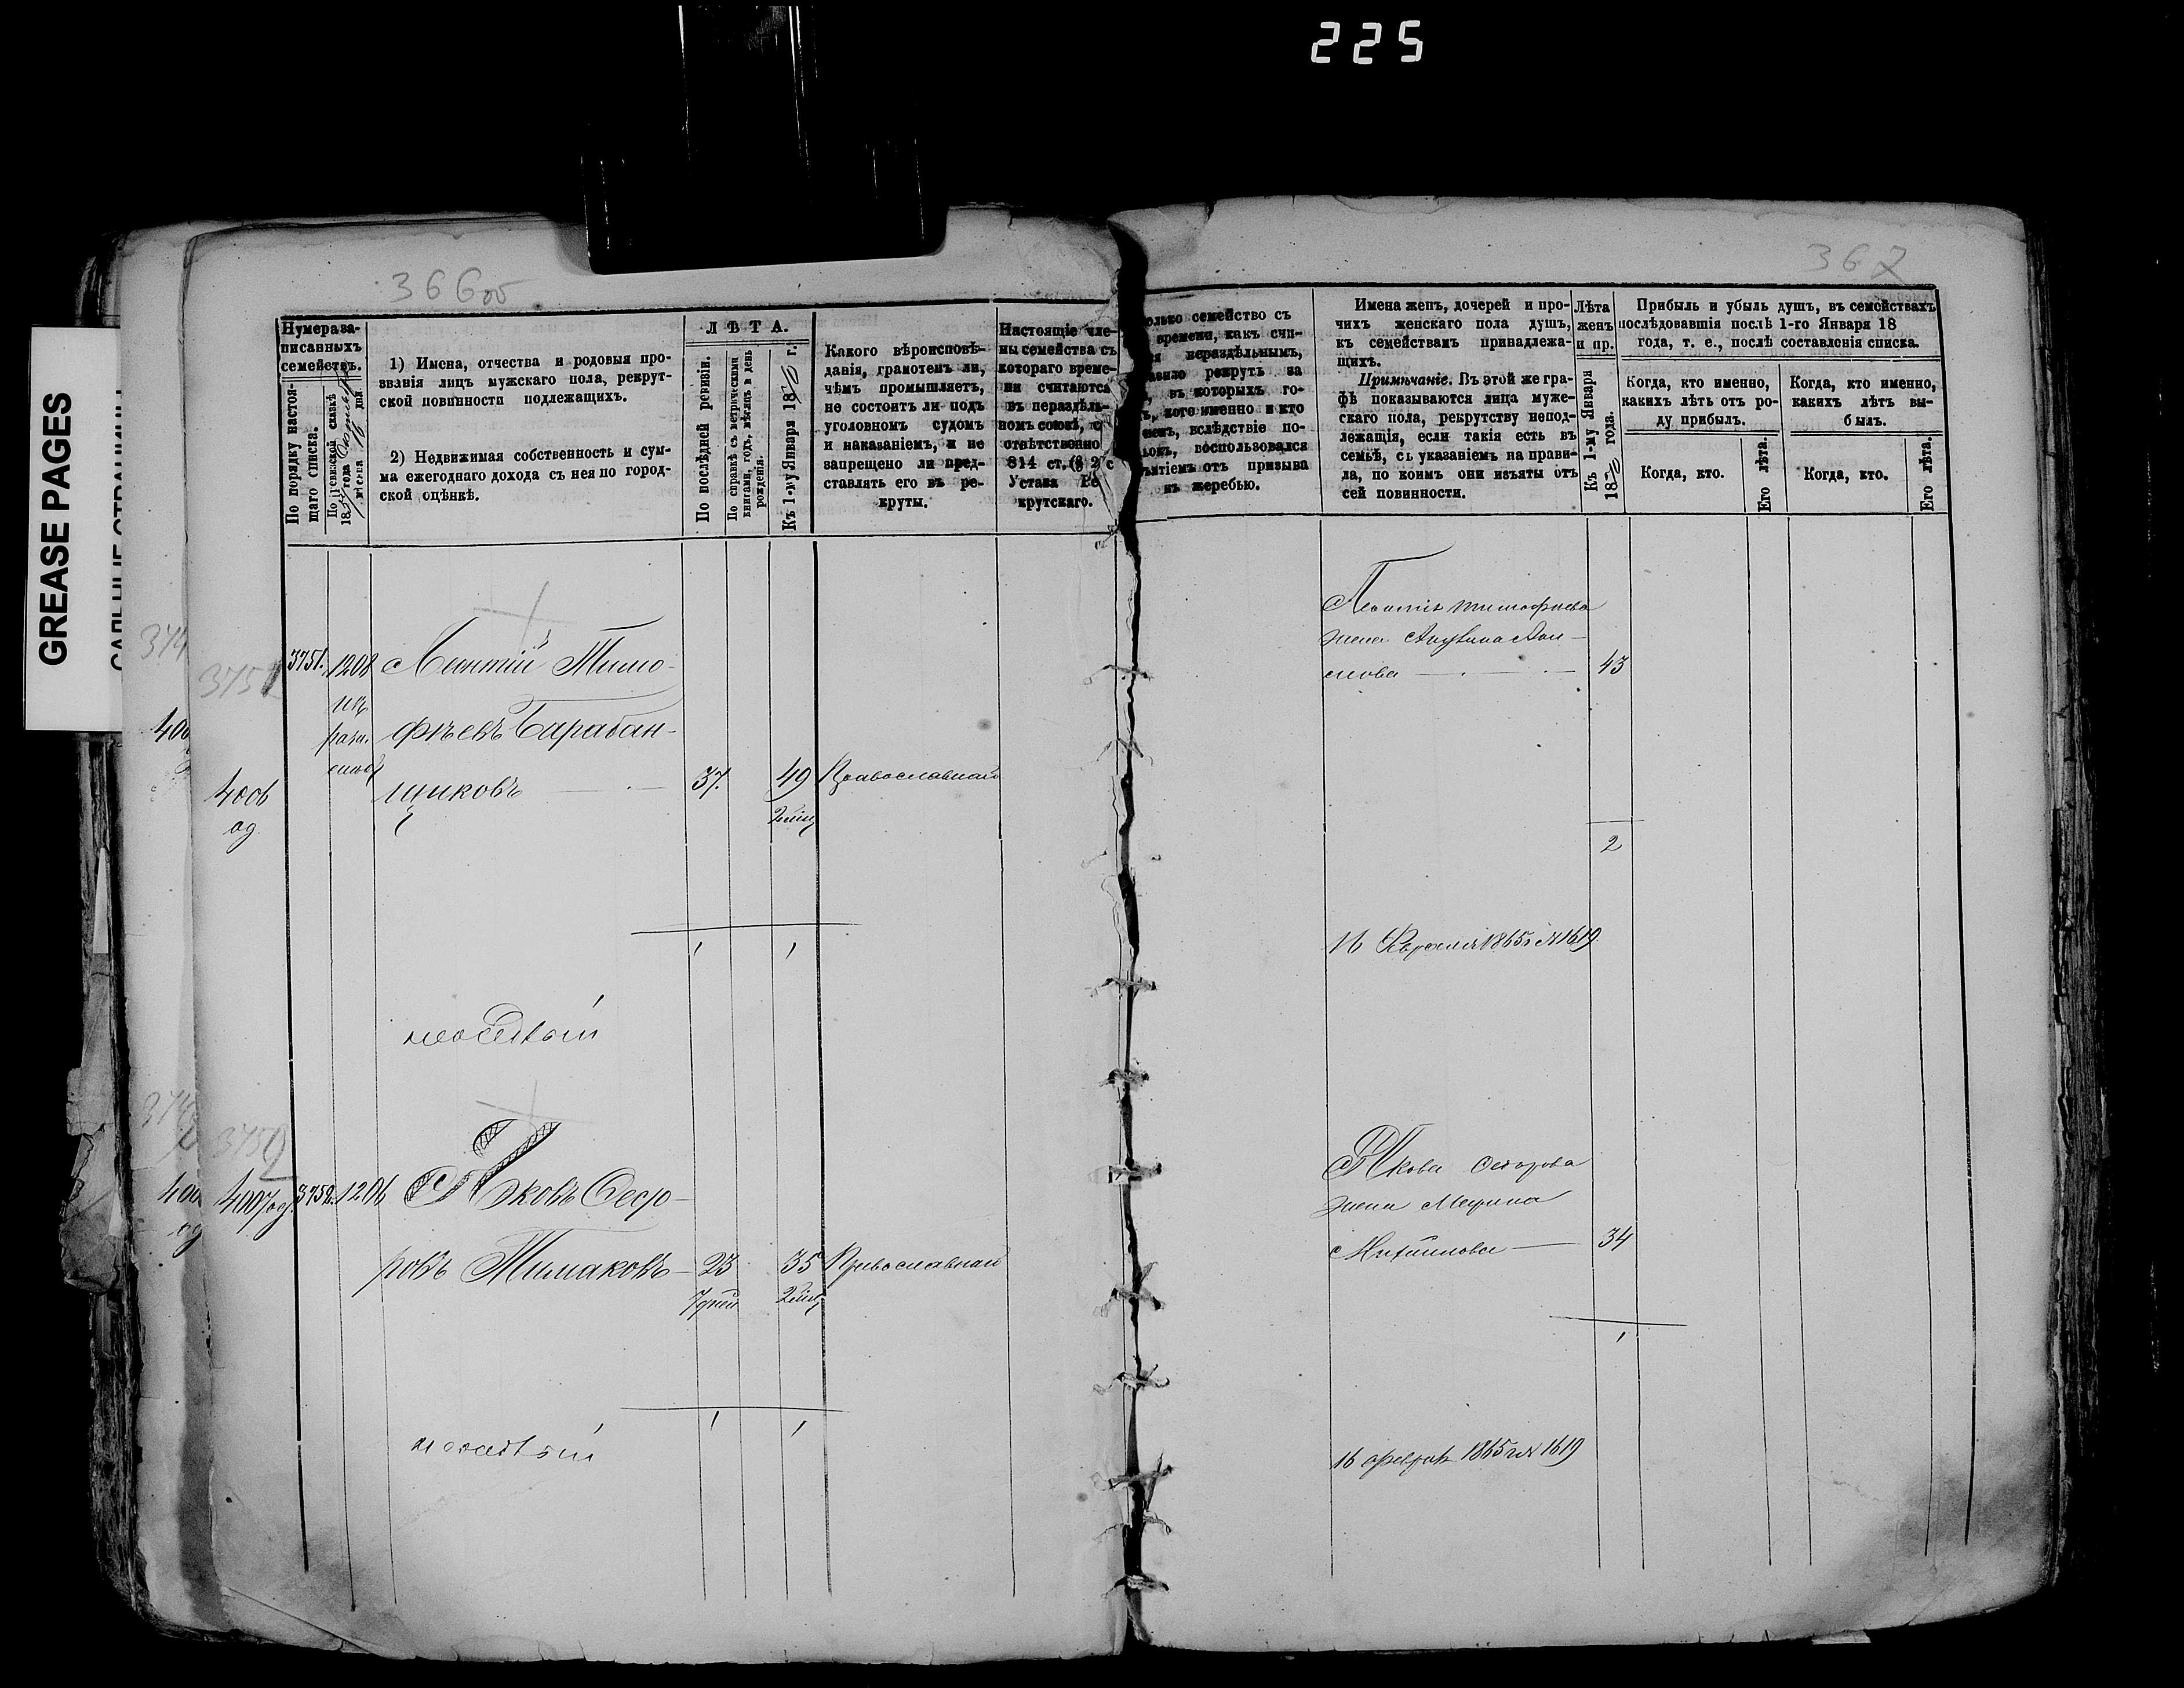 225
GREASE PAGES
366об
367
Нумера за-
писанныхъ
семействъ.
По порядку настоя-
щаго списка.
По ревизской сказкѣ
18 года
мѣсяца 16 дня.
1) Имена, отчества и родовыя про-
званія лицъ мужскаго пола, рекрут-
ской повинности подлежащихъ.
2) Недвижимая собственность и сум-
ма ежегоднаго дохода съ нея по город-
ской оцѣнкѣ.
ЛѢТА.
По послѣдней ревизіи.
По справкѣ съ метрическими
книгами, годъ, мѣсяцъ и день
рожденія.
Къ 1-му Января 1870 г.
Какого вѣроисповѣ-
данія, грамотенъ ли,
чѣмъ промышляетъ,
не состоитъ ли подъ
уголовномъ судомъ
и наказаніемъ, и не
запрещено ли пред-
ставлять его въ ре-
круты.
Настоящіе чле-
ны семейства съ
котораго време-
ни считаются
въ нераздѣль-
номъ союзѣ, с
отвѣтственно
814 ст. (§ 2 с
Устава Ре
крутскаго.
олько семейство съ
времени, какъ счи-
я нераздѣльнымъ,
авило рекрутъ за
, въ которыхъ го-
ъ, кого именно и кто
вслѣдствіе по-
воспользовался
ъятіемъ отъ призыва
къ жеребью.
Имена женъ, дочерей и про-
чихъ женскаго пола душъ,
къ семействамъ принадлежа-
щихъ.
Примѣчаніе. Въ этой же гра-
фѣ показываются лица муже-
скаго пола, рекрутству непод-
лежащія, если такія есть въ
семьѣ, съ указаніемъ на прави-
ла, по коимъ они изъяты отъ
сей повинности.
Лѣта
женъ
и пр.
Къ 1-му Января
1870 года.
Прибыль и убыль душъ, въ семействахъ
послѣдовавшія послѣ 1-го Января 18
года, т. е., послѣ составленія списка.
Когда, кто именно,
какихъ лѣтъ отъ ро-
ду прибылъ.
Когда, кто.
Его лѣта.
Когда, кто именно,
какихъ лѣтъ вы-
былъ.
Когда, кто.
Его лѣта.
3751
3751. 1208 Леонтій Тимо-
изъ
фѣевъ Барабан-
щиковъ 37. 49 Православнаго
4006
од.
Леонтія Тимофѣева
жена
43
2
1 1
16 Февраля 1865 г. № 1619
3752
4007 од. 3752. 1206 Яковъ Ѳедо-
ровъ Тимаковъ 23 35 Православнаго
7 дней
Якова Ѳедорова
жена Марина
Михайлова 34
1
1 1
16 февраля 1865 г. № 1619